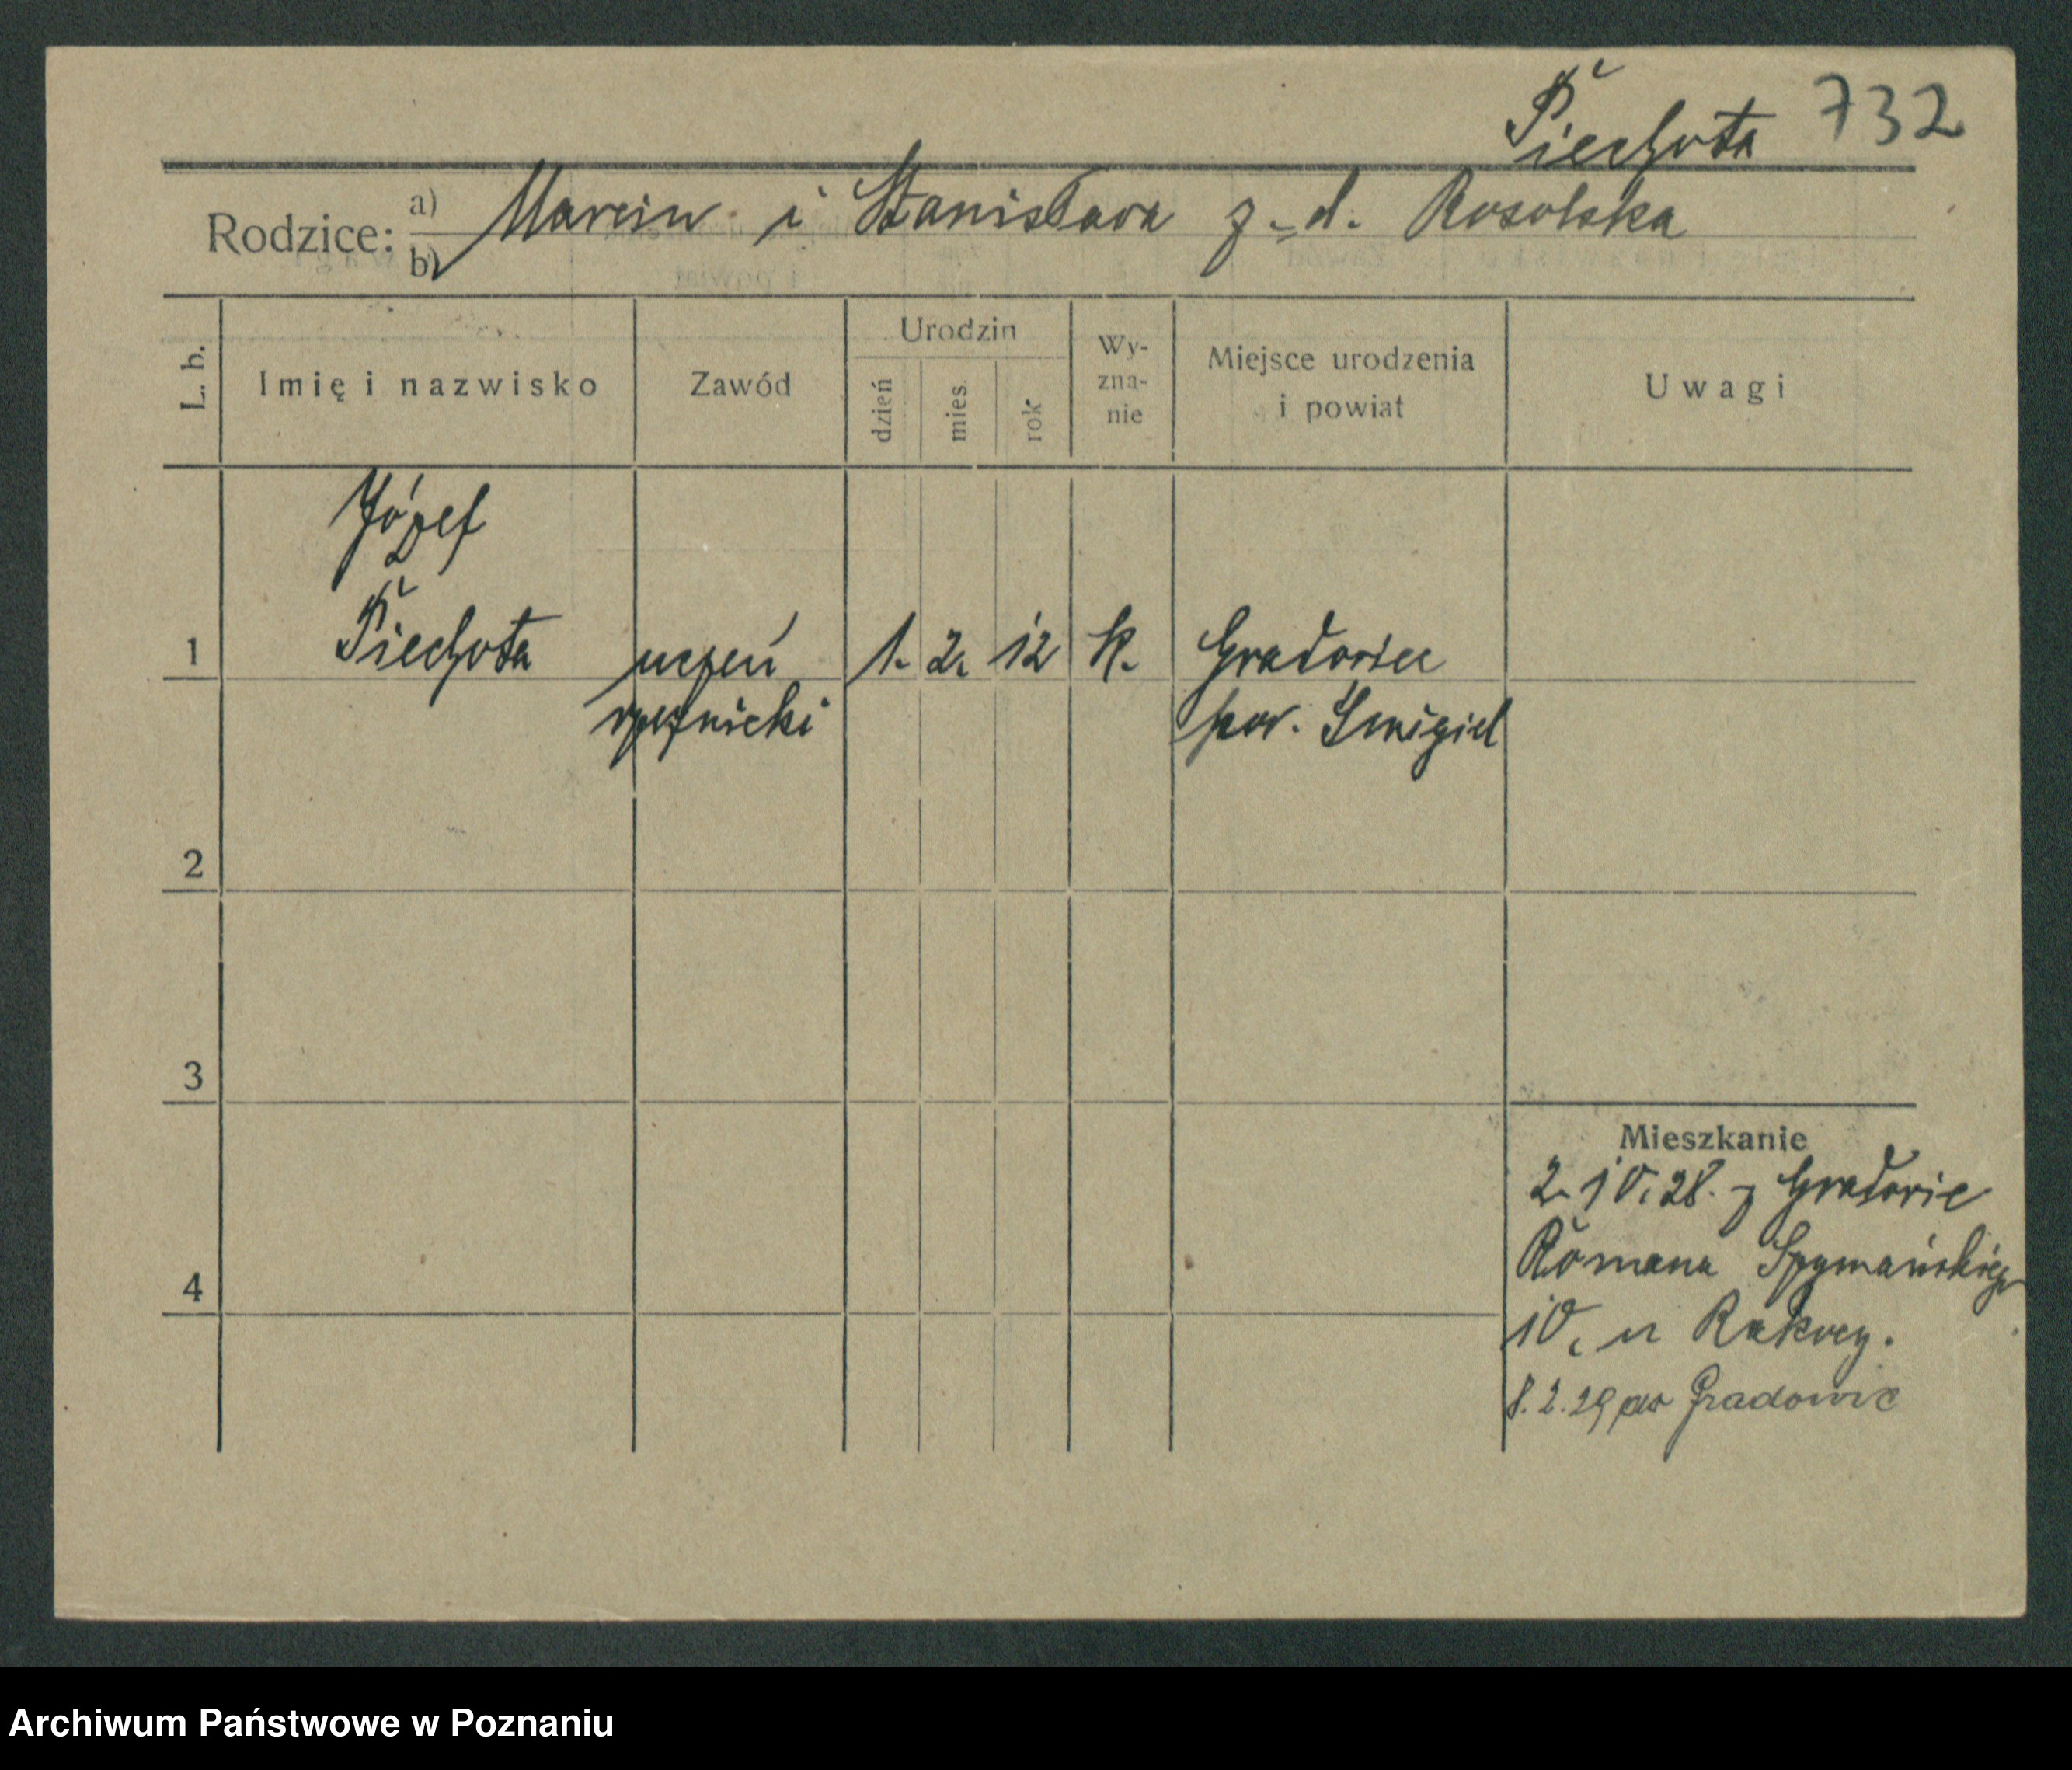 Piechota 732
Rodzice: a) Marcin i Stanisława z-d. Rosolska
b)
L. b. Imię i nazwisko Zawód Urodzin dzień mies. rok Wy-zna-nie Miejsce urodzenia i powiat Uwagi
Józef
1 Piechota uczeń 1. 2. 12 k. Gradowiec
rzeźnicki pow. Śmigiel
2
3
Mieszkanie
2. 10. 28. z Gradowic
Romana Szymańskiego
4
10, w Rakwcy.
8.2.29 do Gradowic
Archiwum Państwowe w Poznaniu